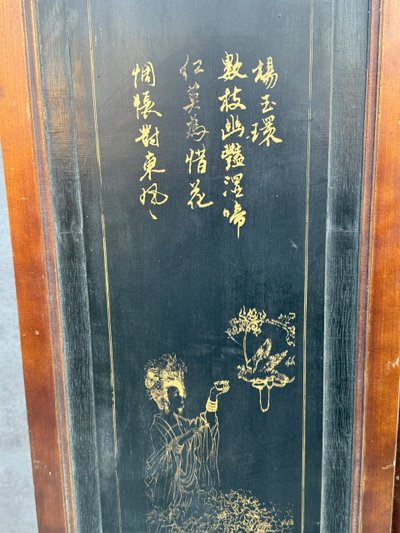 楊玉環
數枝幽豔濕啼
紅莫為惜花
惆悵對東風〻